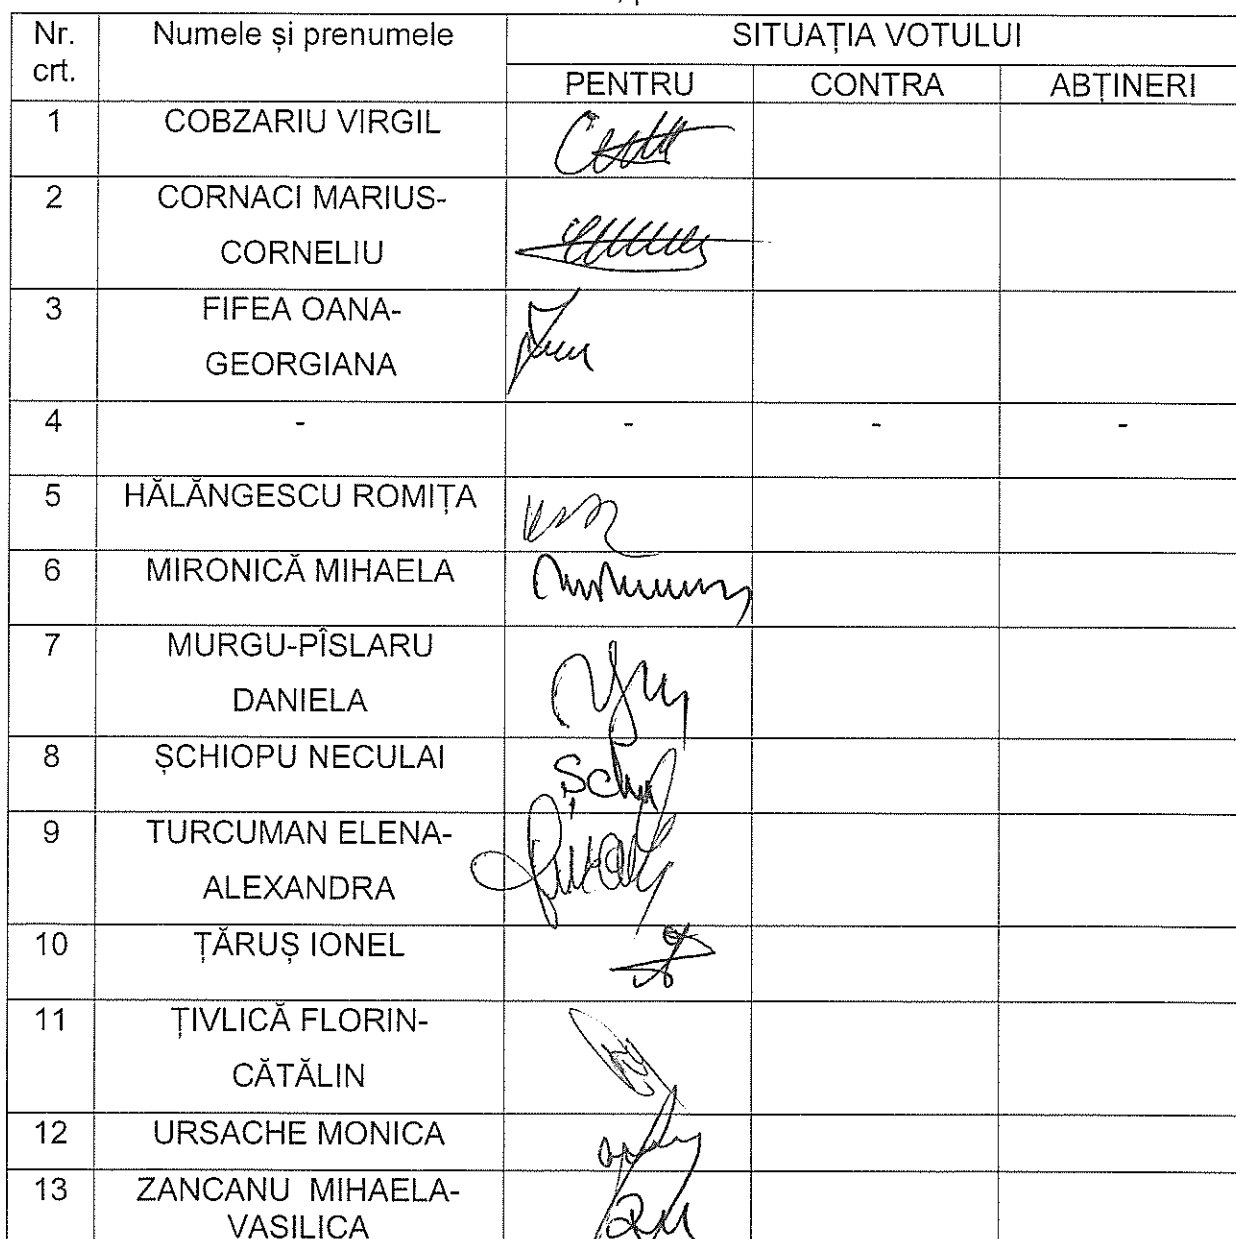 Nr.
crt.
Numele și prenumele
SITUAȚIA VOTULUI
PENTRU
CONTRA
ABȚINERI
1
COBZARIU VIRGIL
2
CORNACI MARIUS-
CORNELIU
3
FIFEA OANA-
GEORGIANA
4
-
-
-
-
5
HĂLĂNGESCU ROMIȚA
6
MIRONICĂ MIHAELA
7
MURGU-PÎSLARU
DANIELA
8
ȘCHIOPU NECULAI
9
TURCUMAN ELENA-
ALEXANDRA
10
ȚĂRUȘ IONEL
11
ȚIVLICĂ FLORIN-
CĂTĂLIN
12
URSACHE MONICA
13
ZANCANU MIHAELA-
VASILICA